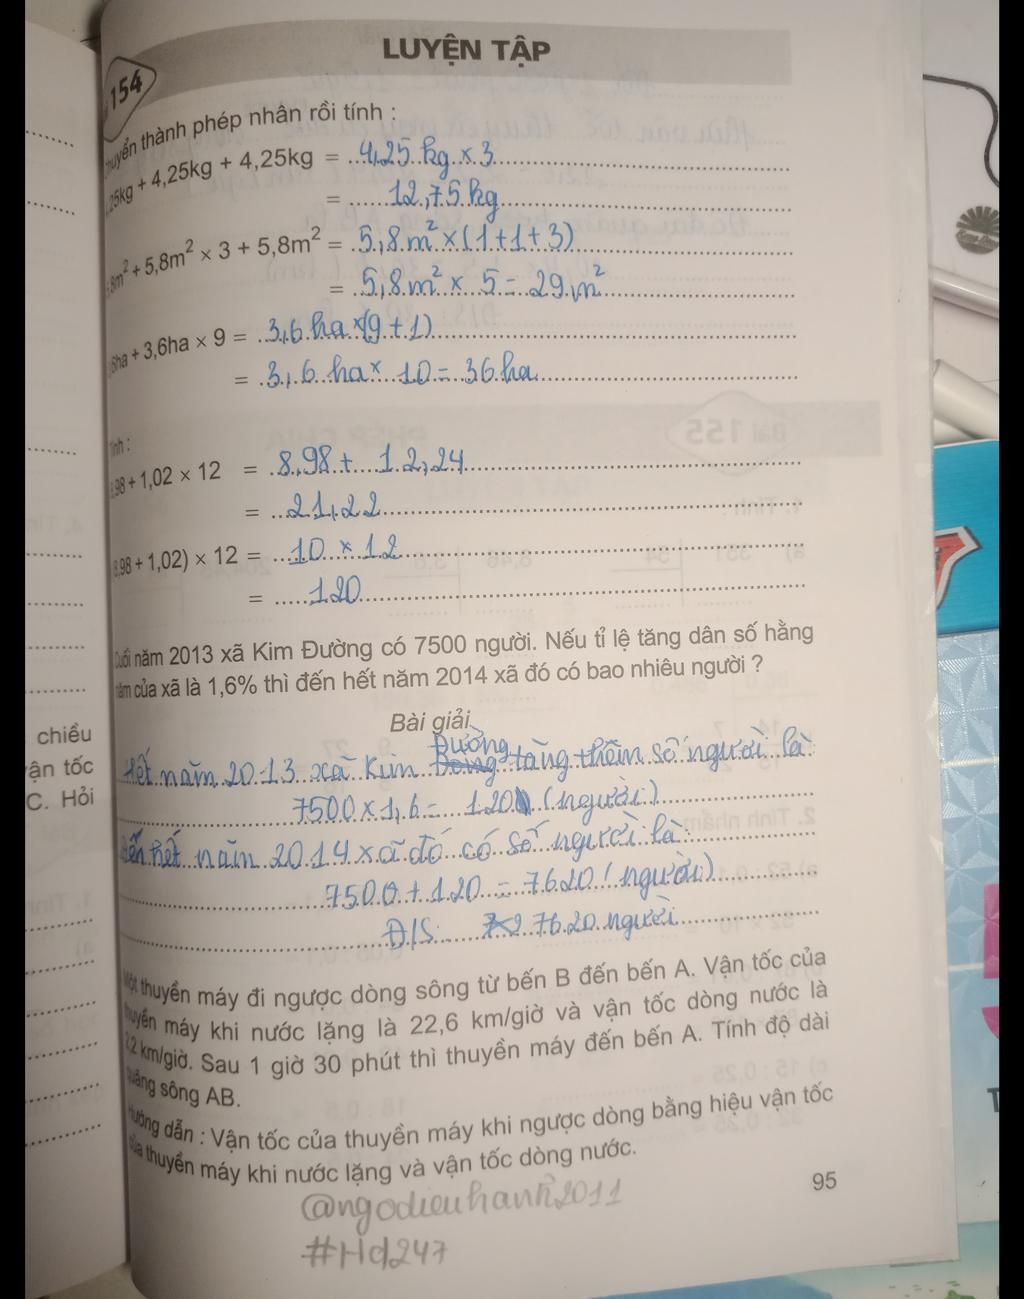 LUYỆN TẬP
154
thành phép nhân rồi tính :
+ 4,25kg + 4,25kg = 4,25 kg × 3
= 12,75 kg
+ 5,8m² × 3 + 5,8m² = 5,8 m² × (1+1+3)
= 5,8 m² × 5 = 29 m²
+ 3,6ha × 9 = 3,6 ha ×(9+1)
= 3,6 ha × 10 = 36 ha
+ 1,02 × 12 = 8,98 + 12,24
= 21,22
+ 1,02) × 12 = 10 × 12
= 120
năm 2013 xã Kim Đường có 7500 người. Nếu tỉ lệ tăng dân số hằng
năm của xã là 1,6% thì đến hết năm 2014 xã đó có bao nhiêu người ?
Bài giải
Hết năm 2013 xã Kim Đường tăng thêm số người là:
7500 × 1,6 = 120 (người)
Đến hết năm 2014 xã đó có số người là:
7500 + 120 = 7620 (người)
Đ/S: 7620 người
Một thuyền máy đi ngược dòng sông từ bến B đến bến A. Vận tốc của
thuyền máy khi nước lặng là 22,6 km/giờ và vận tốc dòng nước là
2,2 km/giờ. Sau 1 giờ 30 phút thì thuyền máy đến bến A. Tính độ dài
quãng sông AB.
Hướng dẫn : Vận tốc của thuyền máy khi ngược dòng bằng hiệu vận tốc
của thuyền máy khi nước lặng và vận tốc dòng nước.
95
@ngodieuhanh2011
#Hd247
chiều
vận tốc
C. Hỏi